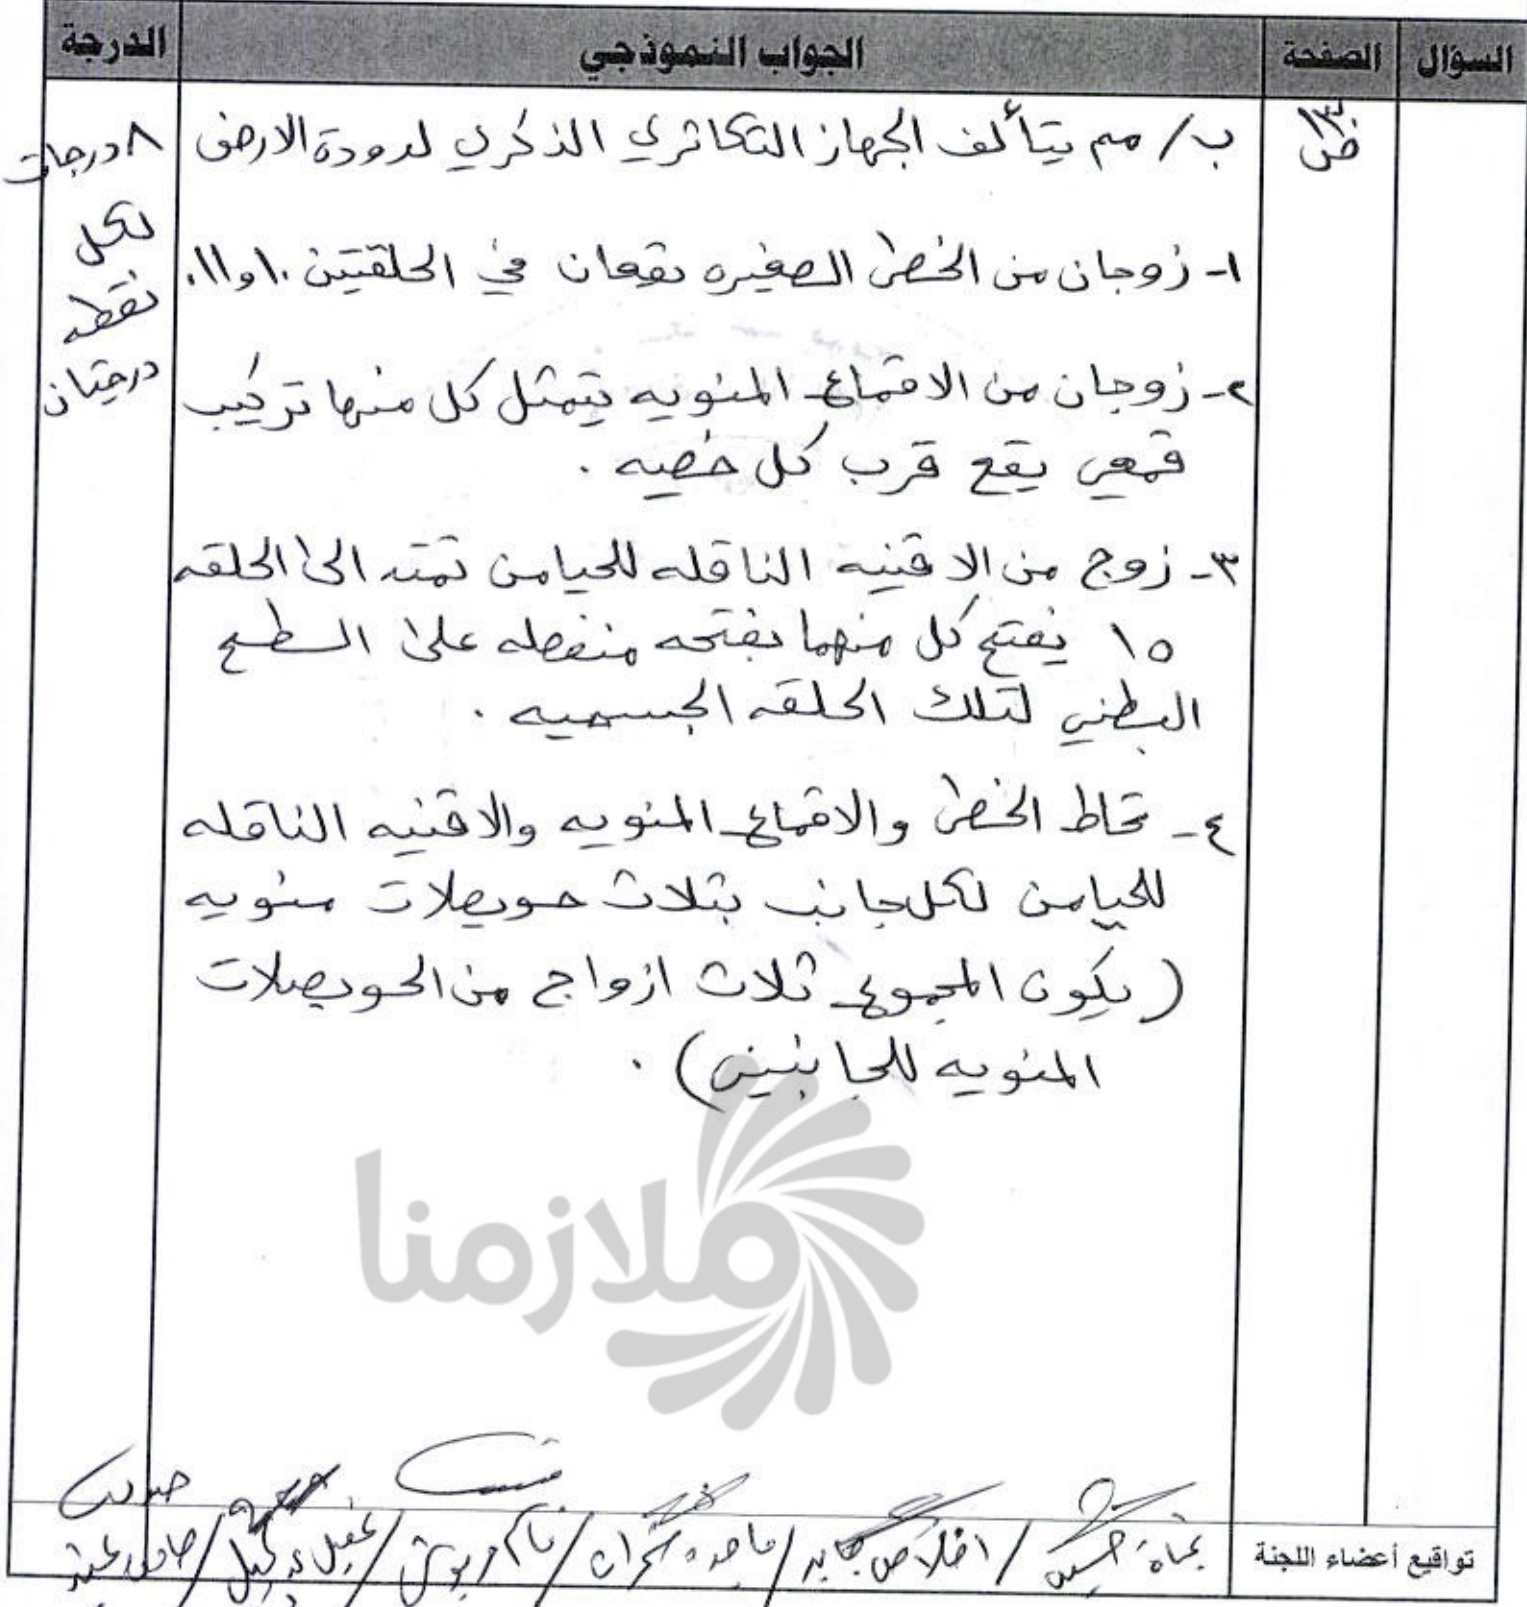 السؤال الصفحة الجواب النموذجي الدرجة
ص ١٣٠
ب/ مم يتألف الجهاز التكاثري الذكري لدودة الارض
٨ درجات
لكل
نقطه
درجتان
١- زوجان من الخصى الصغيره يقعان في الحلقتين ١٠ و١١.
٢- زوجان من الاقماع المنويه يتمثل كل منها تركيب
قمعي يقع قرب كل خصيه .
٣- زوج من الاقنيه الناقله للحيامن تمتد الى الحلقه
١٥ يفتح كل منهما بفتحه منفصله على السطح
البطني لتلك الحلقه الجسميه .
٤- تحاط الخصى والاقماع المنويه والاقنيه الناقله
للحيامن لكل جانب بثلاث حويصلات منويه
( يكون المجموع ثلاث ازواج من الحويصلات
المنويه للجانبين ) .
ملازمنا
تواقيع أعضاء اللجنة